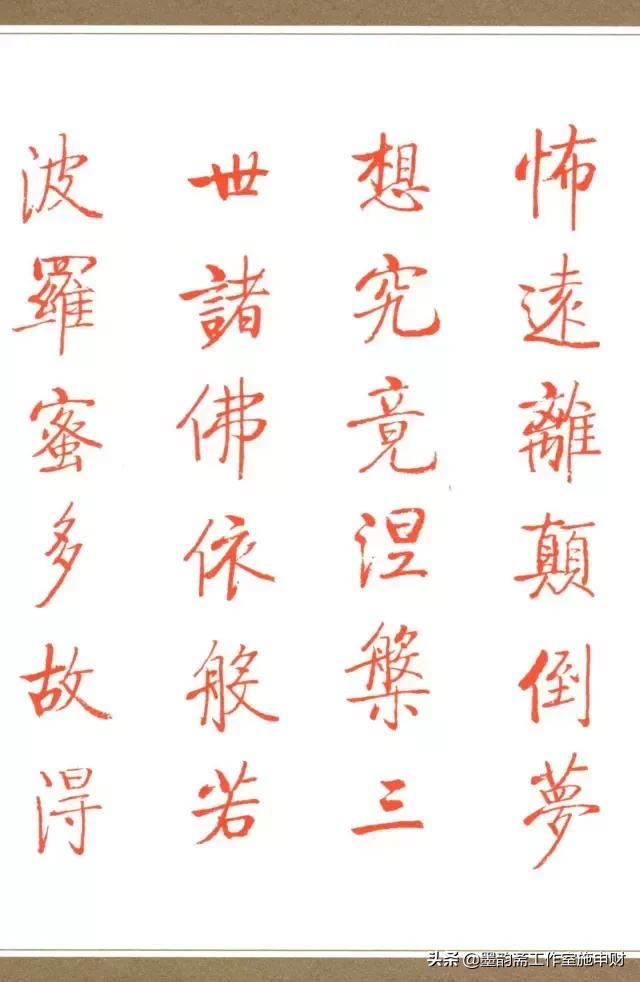 怖遠離顛倒夢
想究竟涅槃三
世諸佛依般若
波羅蜜多故得
头条 @墨韵斋工作室施申财